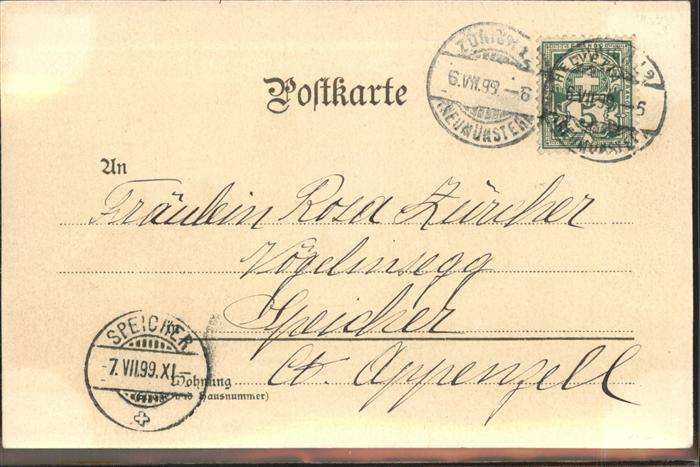 Postkarte
ZÜRICH 12
6.VII.99.–6
(NEUMÜNSTER)
HELVETIA
5
6.VII.99.–6
An
Fräulein Rosa Zürcher
Vögelinsegg
Speicher
Ct. Appenzell
SPEICHER
-7.VII.99.XI-
Wohnung
Hausnummer)